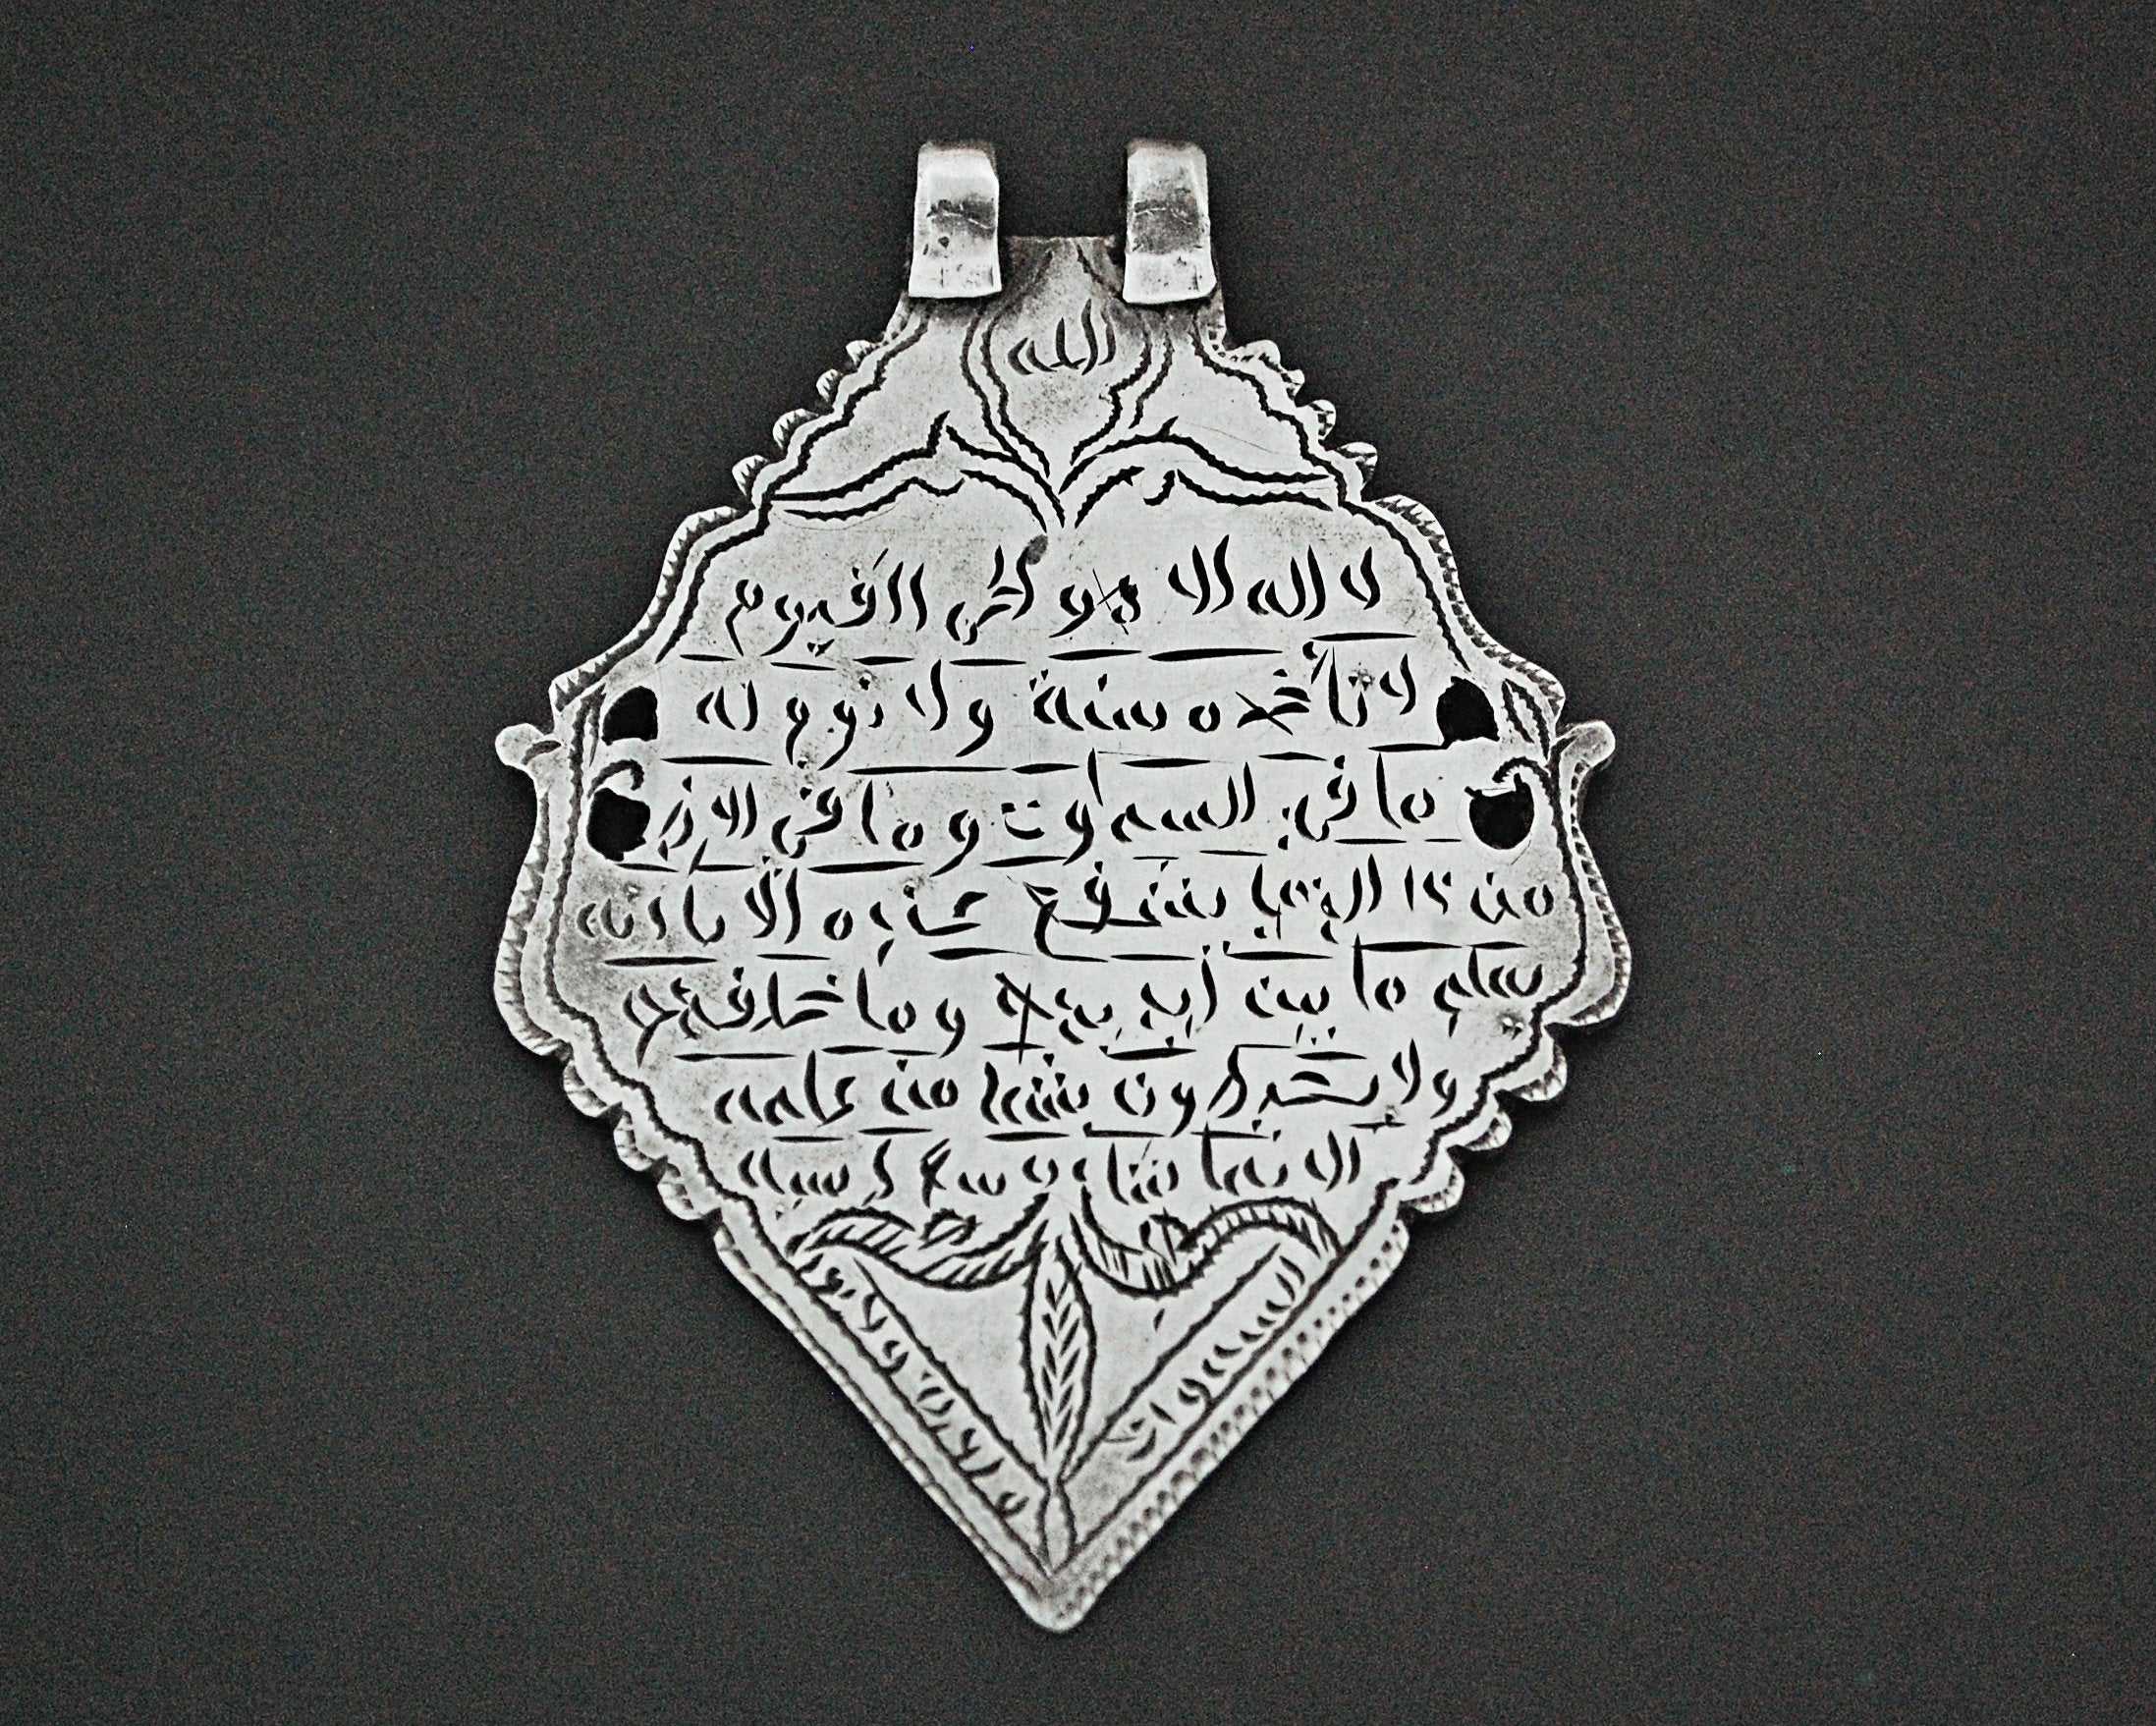 الله
لا اله الا هو الحى القيوم
لا تأخذه سنة ولا نوم له
ما فى السماوت وما فى الارض
من ذا الذى يشفع عنده الا باذنه
يعلم ما بين أيديهم وما خلفهم
ولا يحيطون بشيا من علمه
الا بما شاء وسع كرسيه
السموات
والارض ولا يؤد